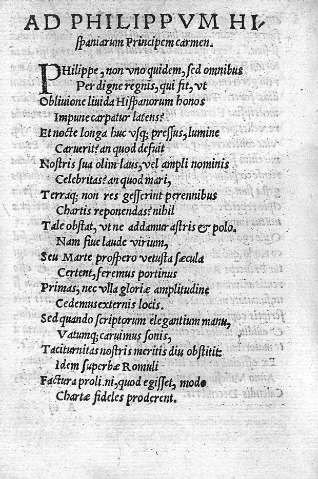 AD PHILIPPVM HI-
spaniarum Principem carmen.
PHilippe, non vno quidem, sed omnibus
Per digne regnis, qui fit, vt
Obliuione liuida Hispanorum honos
Impune carpatur latens?
Et nocte longa huc vsq; pressus, lumine
Caruerit? an quod defuit
Nostris sua olim laus, vel ampli nominis
Celebritas? an quod mari,
Terraq; non res gesserint perennibus
Chartis reponendas? nihil
Tale obstat, vt ne addamur astris & polo.
Nam siue laude virium,
Seu Marte prospero vetusta sæcula
Certent, feremus protinus
Primas, nec vlla gloriæ amplitudine
Cedemus externis locis.
Sed quando scriptorum elegantium manu,
Vatumq; caruimus sonis,
Taciturnitas nostris meritis diu obstitit:
Idem superbæ Romuli
Factura proli ni, quod egisset, modo
Chartæ fideles proderent.